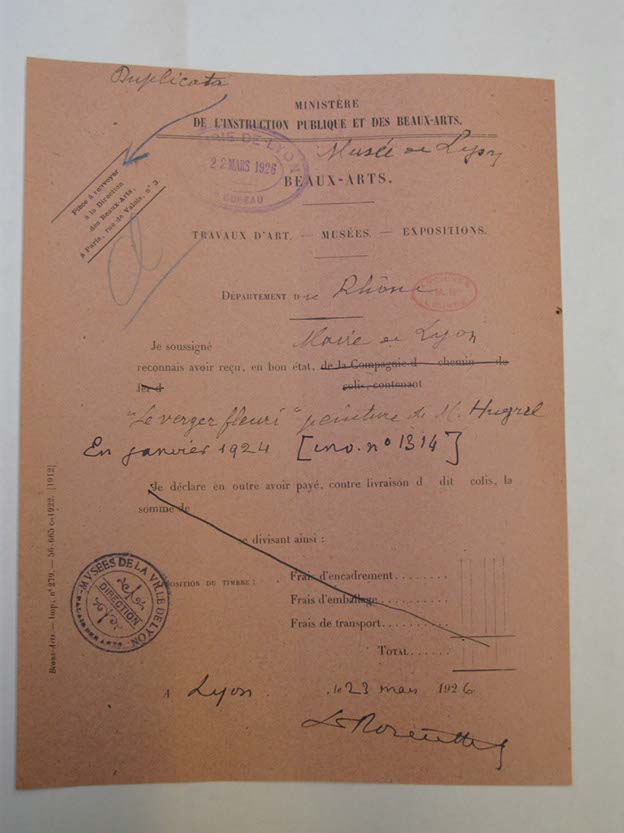 Duplicata
MINISTÈRE
DE L'INSTRUCTION PUBLIQUE ET DES BEAUX-ARTS.
Musée de Lyon
22 MARS 1926
BUREAU
BEAUX-ARTS.
Pièce à renvoyer
à la Direction
des Beaux-Arts,
A Paris, rue de Valois, n° 3.
TRAVAUX D'ART. — MUSÉES. — EXPOSITIONS.
DÉPARTEMENT DU Rhône
Je soussigné Maire de Lyon
reconnais avoir reçu, en bon état, de la Compagnie d chemin de
fer d colis, contenant
"Le verger fleuri" peinture de M. Hugrel
En janvier 1924 [inv. n° 1314]
Je déclare en outre avoir payé, contre livraison d dit colis, la
somme de
se divisant ainsi :
Frais d'encadrement........
Frais d'emballage..........
Frais de transport.........
TOTAL......
POSITION DU TIMBRE :
MVSÉES DE LA VILLE DE LYON
DIRECTION
Beaux-Arts. — Imp. n° 279. — 56.665 c-1922. [1912]
A Lyon, le 23 mars 1926